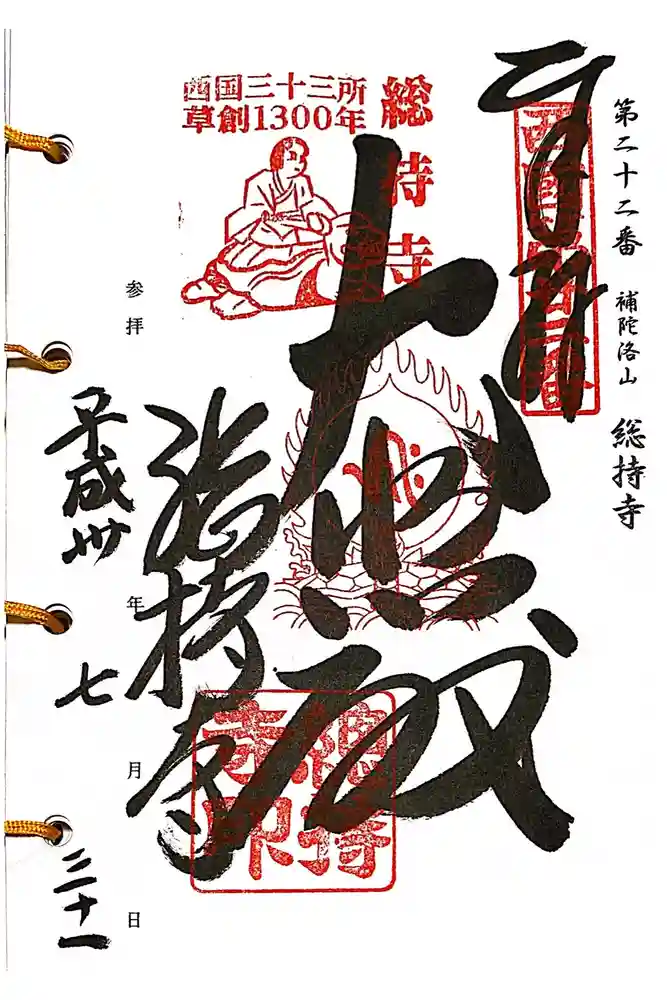 第二十二番 補陀洛山 総持寺
奉拝
西国第廿二番
西国三十三所
草創1300年
総持寺
大悲殿
総持寺
總持
寺印
参拝
平成卅年
七月
三十一日